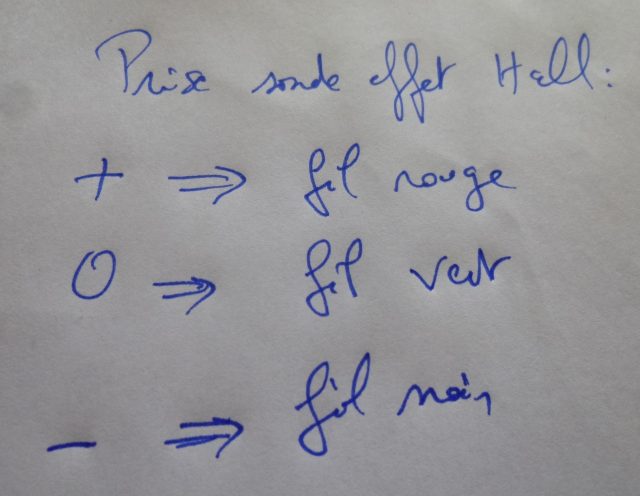 Prise sonde effet Hall :
+ ⇒ fil rouge
0 ⇒ fil vert
- ⇒ fil noir